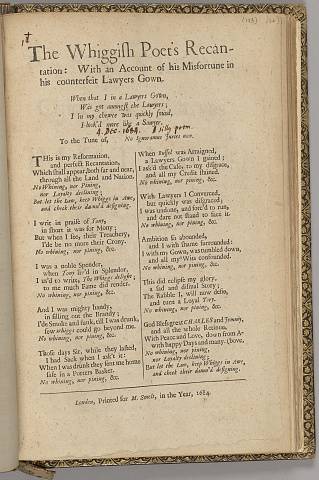 The Whiggish Poet's Recan-
tation: With an Account of his Misfortune in
his counterfeit Lawyers Gown.
When that I in a Lawyers Gown,
Was got amongst the Lawyers;
I in my chance was quickly found,
I look'd more like a Sawyer.
4. Dec. 1684. A silly poem.
To the Tune of, No Ignoramus Juries now.
THis is my Reformation,
and perfect Recantation,
Which shall appear, both far and near,
through all the Land and Nation.
No Whining, nor Pining,
nor Loyalty declining;
But let the Law, keep Whiggs in Awe,
and check their damn'd designing.
I writ in praise of Tony,
in short it was for Mony;
But when I see, their Treachery,
I'de be no more their Crony.
No whining, nor pining, &c.
I was a noble Spender,
when Tony liv'd in Splendor,
I us'd to write, The Whiggs delight;
to me much Fame did render.
No whining, nor pining, &c.
And I was mighty handy,
in filling out the Brandy;
I'de Smoke and funk, till I was drunk,
few whiggs could go beyond me.
No whining, nor pining, &c.
Those days Sir, while they lasted,
I had Sack when I ask't it:
When I was drunk they sent me home
safe in a Porters Basket.
No whining, nor pining, &c.
When Russel was Arraigned,
a Lawyers Gown I gained;
I ask'd the Case, to my disgrace,
and all my Credit stained.
No whining, nor pining, &c.
With Lawyers I Conversed,
but quickly was disgraced;
I was undone, and forc'd to run,
and dare not stand to face it.
No whining, nor pining, &c.
Ambition so abounded,
and I with shame surrounded:
I with my Gown, was tumbled down,
and all my Wits confounded.
No whining, nor pining, &c.
This did eclipse my glory,
a sad and dismal Story;
The Rabble I, will now defie,
and turn a Loyal Tory.
No whining, nor pining, &c.
God bless great CHARLES and Jemmy,
and all the whole Reunion,
With Peace and Love, down from A-
with happy Days and many. (bove,
No whining, nor pining,
nor Loyalty declining;
But let the Law, keep Whiggs in Awe,
and check their damn'd designing.
London, Printed for M. Smelt, in the Year, 1684.